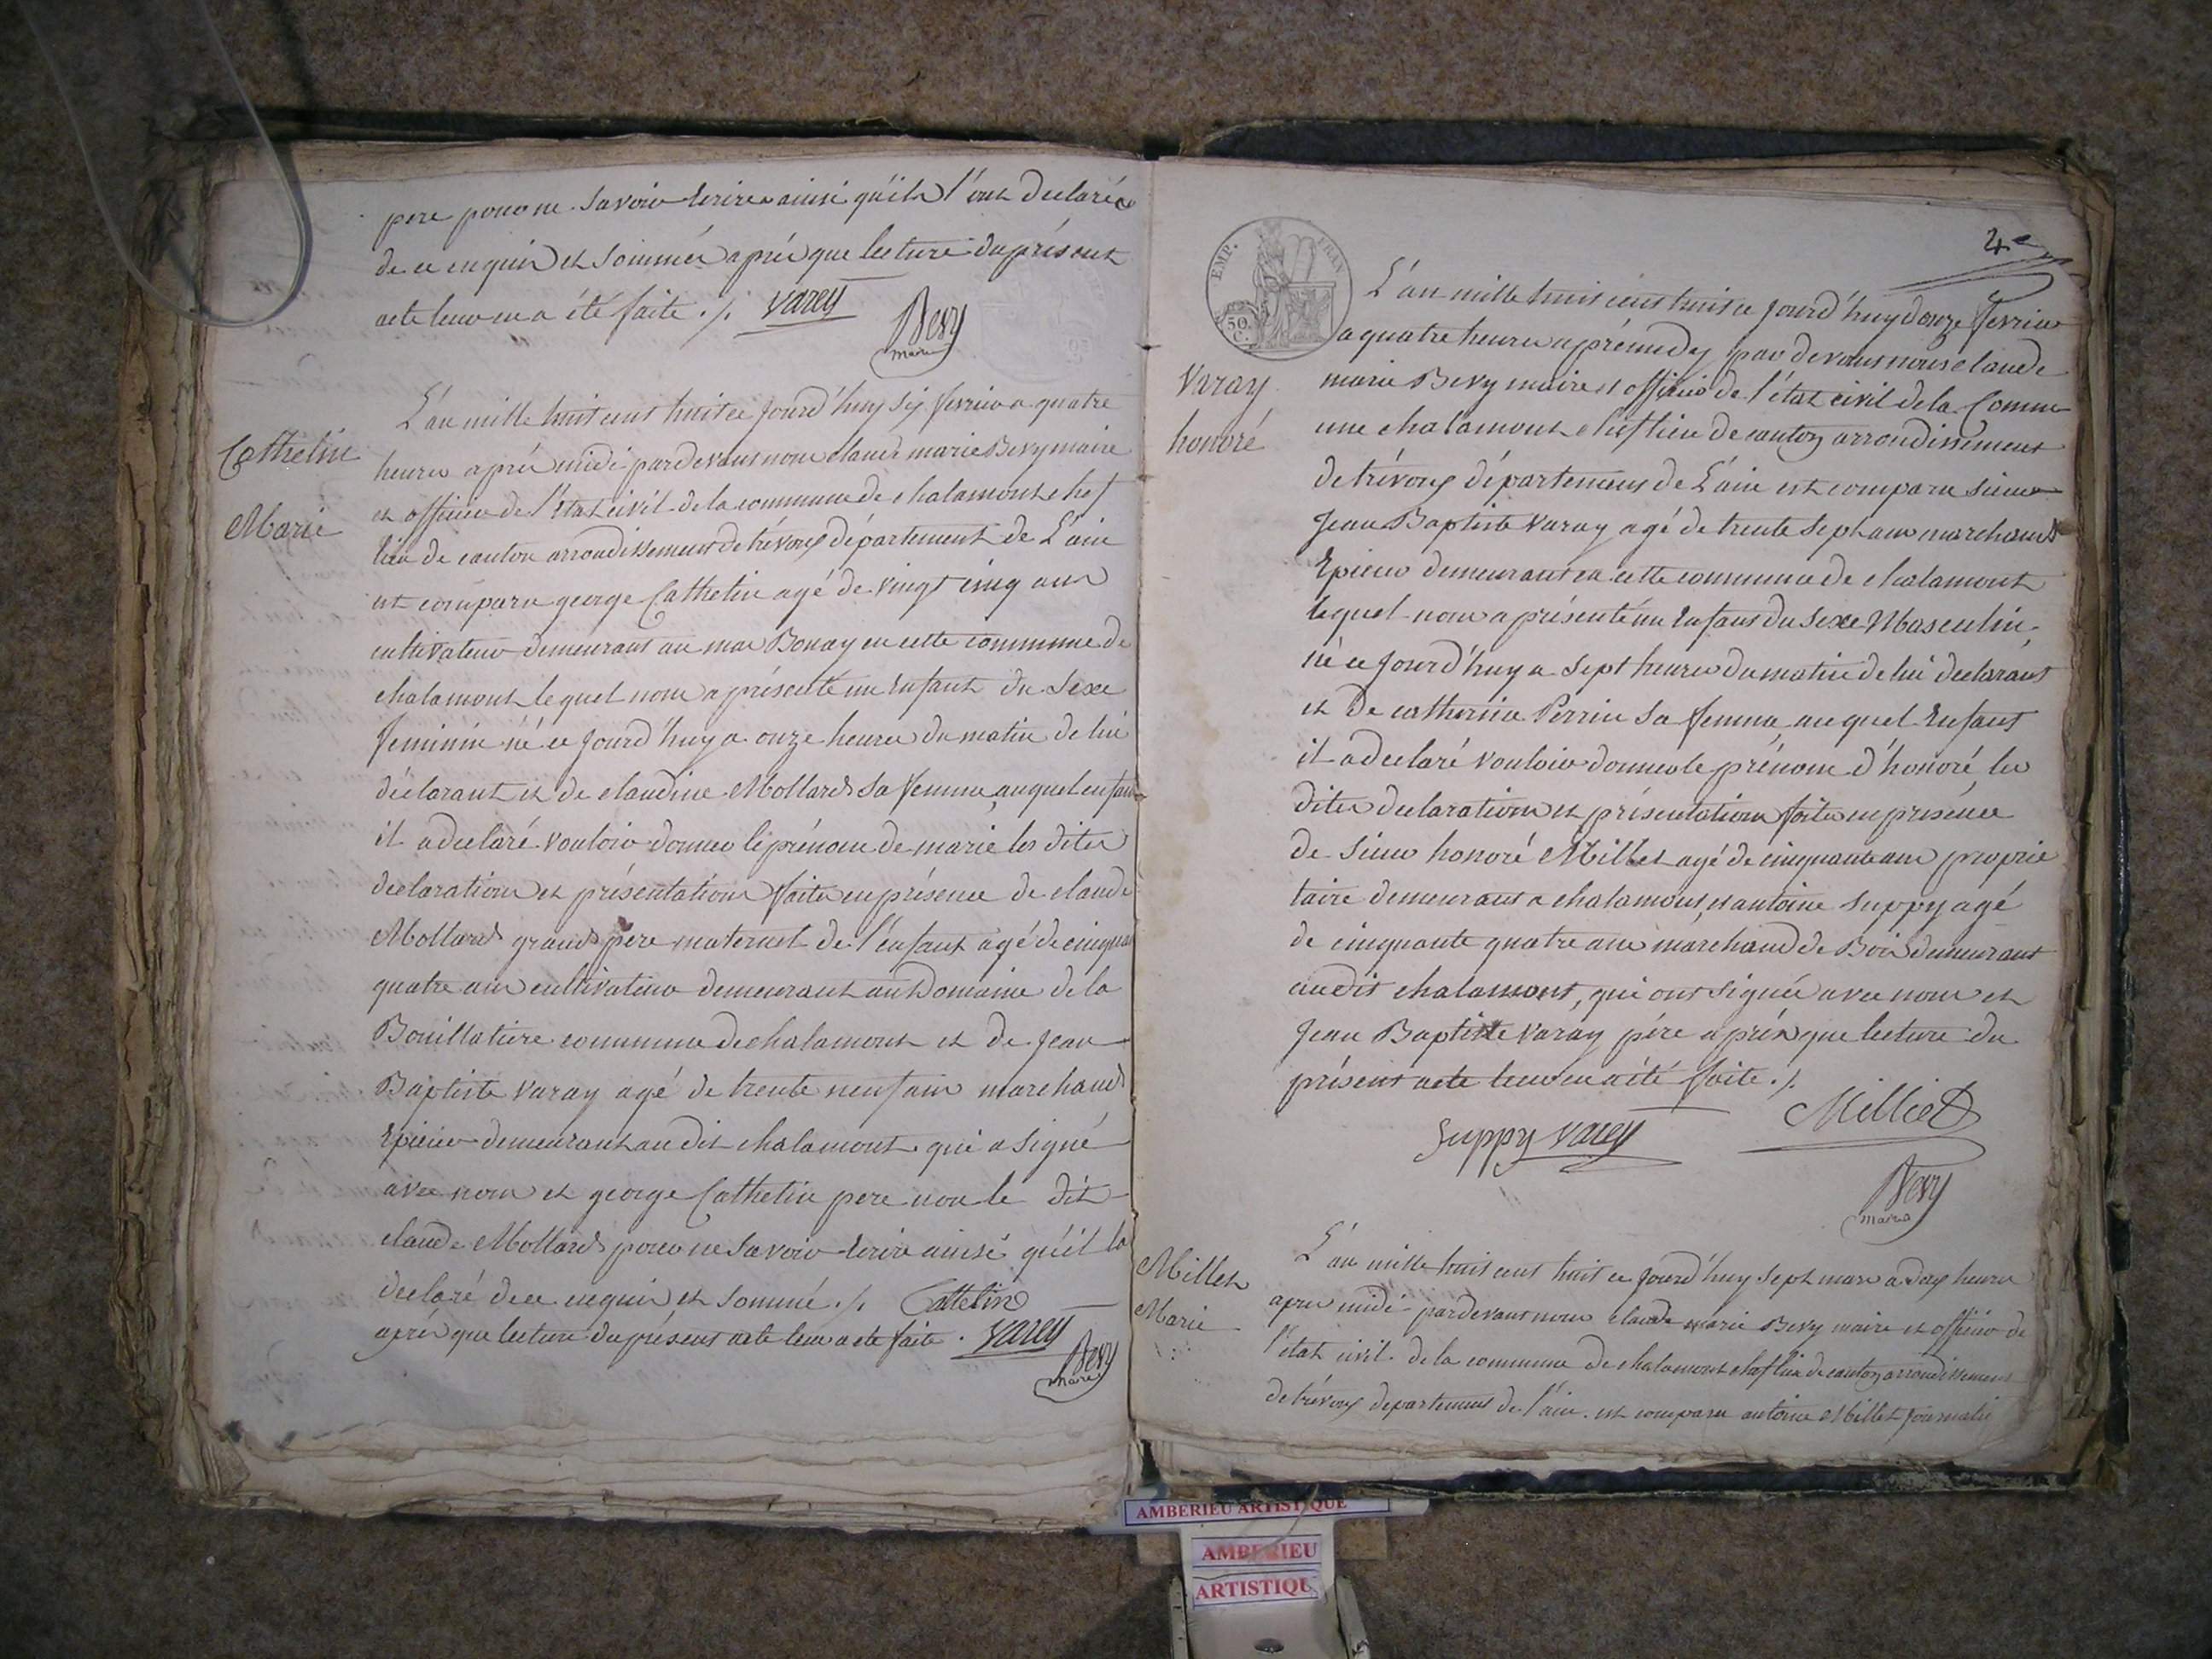 pere pour ne savoir ecrire ainsi qu'ils l'ont declarés
de ce enquis et sommés après que lecture du présent
acte leur en a été faite ./. Varey
Bevy
maire
Cathelin
Marie
L'an mille huit cent huit ce jourd'huy six fevrier a quatre
heures après midi par devant nous claude marie Bevy maire
et officier de l'état civil de la commune de chalamont chef
lieu de canton arrondissement de trévoux département de L'ain
est comparu george Cathelin agé de vingt cinq ans
cultivateur demeurant au mas Bonay en cette commune de
chalamont lequel nous a présenté un Enfant du Sexe
feminin né ce jourd'huy a onze heures du matin de lui
déclarant et de claudine Mollard sa femme, auquel enfant
il a declaré vouloir donner le prénom de marie les dites
declaration et présentation faites en présence de claude
Mollard grand pere maternel de l'enfant agé de cinquan
quatre ans cultivateur demeurant au Domaine de la
Bouillatiere commune de chalamont et de Jean
Baptiste Varay agé de trente neuf ans marchand
Epicier demeurant au dit chalamont qui a signé
avec nous et george Cathelin pere non le dit
claude Mollard pour ne savoir ecrire ainsi qu'il la
declaré de ce enquis et sommé ./. Cattelin
après que lecture du présent acte leur a ete faite . Varey
Bevy
maire
4e
EMP. FRAN
50
C.
Varay
honoré
L'an mille huit cent huit ce jourd'huy douze fevrier
a quatre heures aprémidy par devant nous claude
marie Bevy maire et officier de l'état civil de la Comm
une chalamont chef lieu de canton arrondissement
de trévoux département de L'ain est comparu sieur
Jean Baptiste Varay agé de trente sept ans marchand
Epicier demeurant en cette commune de chalamont
lequel nous a présenté un Enfant du Sexe Masculin
né ce jourd'huy a sept heures du matin de lui declarant
et De catherine Perrin sa femme, auquel Enfant
il a declaré vouloir donner le prénom d'honoré les
dites declaration et présentation faites en présence
de Sieur honoré Millet agé de cinquante ans proprie
taire demeurant a chalamont, et antoine Suppy agé
de cinquante quatre ans marchand de Bois demeurant
audit chalamont, qui ont signée avec nous et
Jean Baptiste Varay père après que lecture du
présent acte leur en a été faite ./.
Suppy Varey Milliet
Bevy
maire
Millet
Marie
L'an mille huit cent huit ce jourd'huy sept mars a dix heures
apres midi pardevant nous claude marie Bevy maire et officier de
l'état civil de la commune de chalamont chef lieu de canton arrondissement
de trévoux departement de l'ain est comparu antoine Millet journalie
AMBERIEU ARTISTIQUE
AMBERIEU
ARTISTIQU